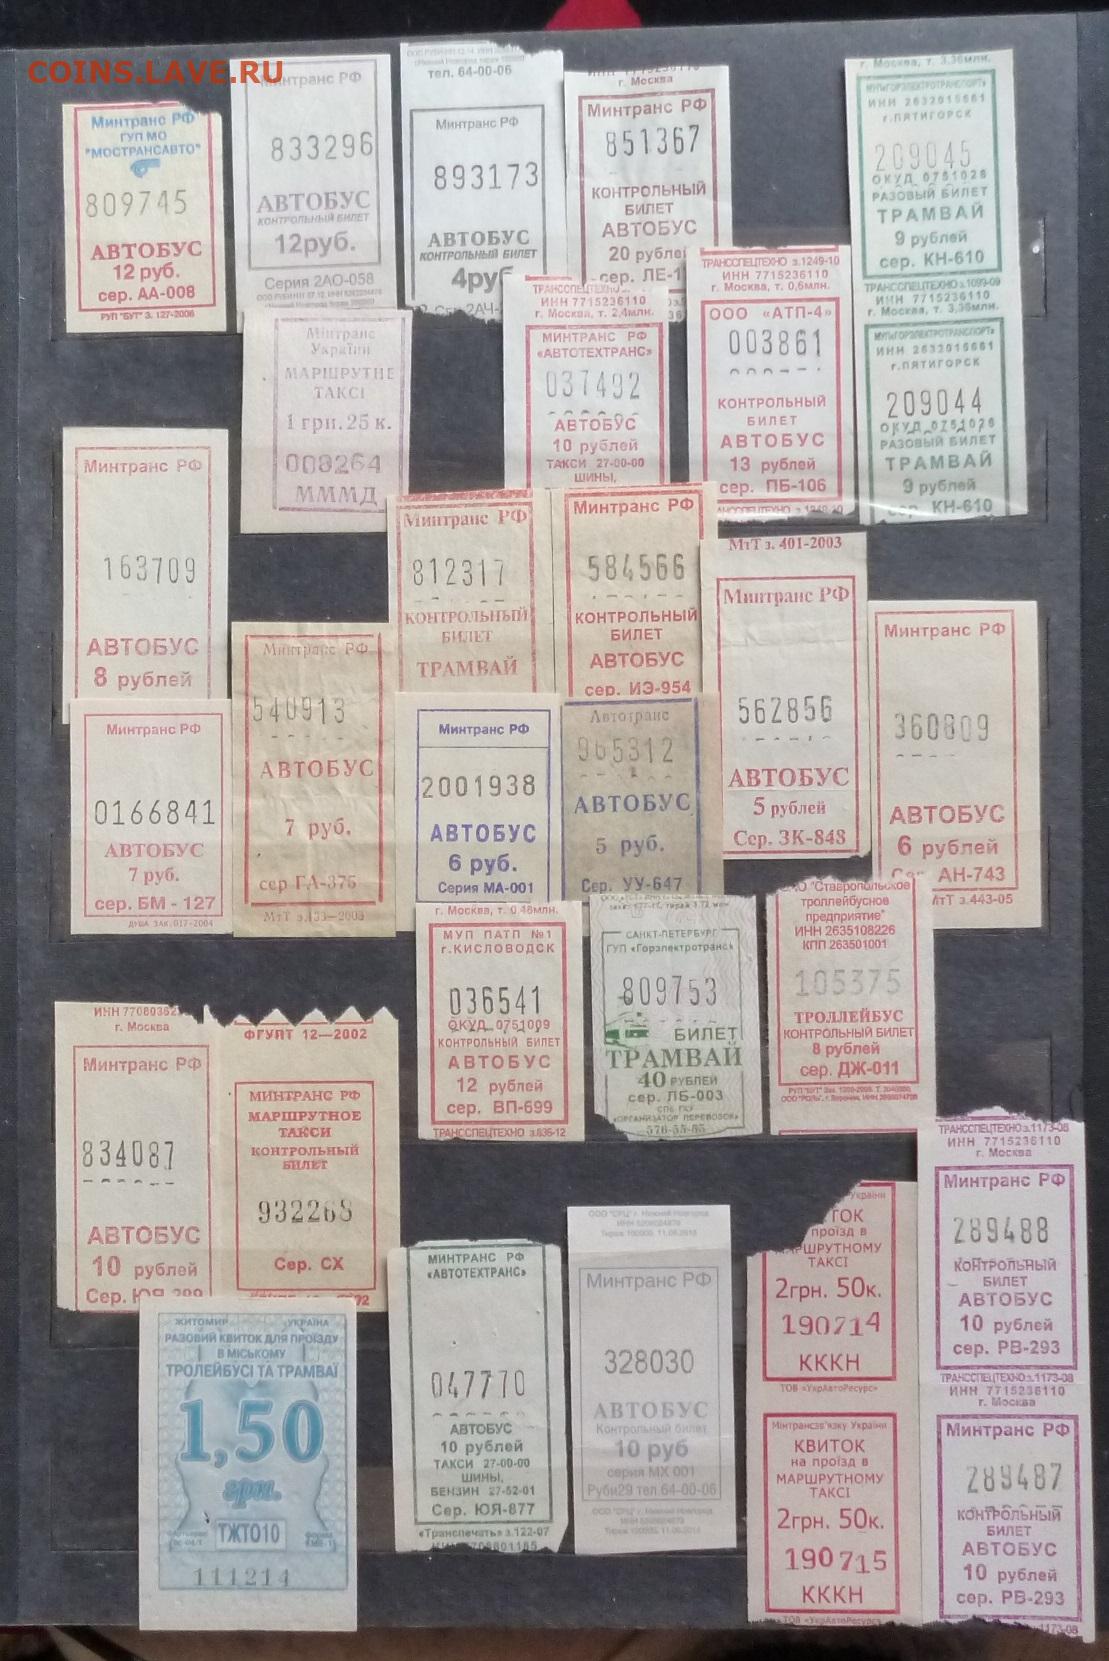 COINS.LAVE.RU
Минтранс РФ
ГУП МО
"МОСТРАНСАВТО"
809745
АВТОБУС
12 руб.
сер. АА-008
РУП "БУТ" З. 127-2006
Минтранс РФ
833296
АВТОБУС
КОНТРОЛЬНЫЙ БИЛЕТ
12руб.
Серия 2АО-058
тел. 64-00-06
Минтранс РФ
893173
АВТОБУС
КОНТРОЛЬНЫЙ БИЛЕТ
4руб
г. Москва
Минтранс РФ
851367
КОНТРОЛЬНЫЙ
БИЛЕТ
АВТОБУС
20 рублей
сер. ЛЕ-1
г. Москва, т. 3,36млн.
МУП«ГОРЭЛЕКТРОТРАНСПОРТ»
ИНН 2632015661
г.ПЯТИГОРСК
209045
ОКУД 0751028
РАЗОВЫЙ БИЛЕТ
ТРАМВАЙ
9 рублей
сер. КН-610
ТРАНССПЕЦТЕХНО з.1099-09
ИНН 7715236110
г. Москва, т. 3,36млн.
МУП«ГОРЭЛЕКТРОТРАНСПОРТ»
ИНН 2632015661
г.ПЯТИГОРСК
209044
ОКУД 0751028
РАЗОВЫЙ БИЛЕТ
ТРАМВАЙ
9 рублей
сер. КН-610
Мінтранс
України
МАРШРУТНЕ
ТАКСІ
1 грн. 25 к.
008264
МММД
ТРАНССПЕЦТЕХНО
ИНН 7715236110
г. Москва, т. 2,4млн.
МИНТРАНС РФ
«АВТОТЕХТРАНС»
037492
АВТОБУС
10 рублей
ТАКСИ 27-00-00
ШИНЫ,
ТРАНССПЕЦТЕХНО з.1249-10
ИНН 7715236110
г. Москва, т. 0,6млн.
ООО «АТП-4»
003861
КОНТРОЛЬНЫЙ
БИЛЕТ
АВТОБУС
13 рублей
сер. ПБ-106
Минтранс РФ
163709
АВТОБУС
8 рублей
Минтранс РФ
812317
КОНТРОЛЬНЫЙ
БИЛЕТ
ТРАМВАЙ
Минтранс РФ
584566
КОНТРОЛЬНЫЙ
БИЛЕТ
АВТОБУС
сер. ИЭ-954
МтТ з. 401-2003
Минтранс РФ
562856
АВТОБУС
5 рублей
Сер. ЗК-848
Минтранс РФ
360809
АВТОБУС
6 рублей
АН-743
МтТ з.443-05
Минтранс РФ
0166841
АВТОБУС
7 руб.
сер. БМ - 127
ДУША ЗАК.017-2004
Минтранс РФ
540913
АВТОБУС
7 руб.
сер ГА-375
Минтранс РФ
2001938
АВТОБУС
6 руб.
Серия МА-001
Автотранс
965312
АВТОБУС
5 руб.
Сер. УУ-647
г. Москва, т. 0,48млн.
МУП ПАТП №1
г.КИСЛОВОДСК
036541
ОКУД 0751009
КОНТРОЛЬНЫЙ БИЛЕТ
АВТОБУС
12 рублей
сер. ВП-699
ТРАНССПЕЦТЕХНО з.835-12
САНКТ-ПЕТЕРБУРГ
ГУП «Горэлектротранс»
809753
БИЛЕТ
ТРАМВАЙ
40 РУБЛЕЙ
сер. ЛБ-003
СПБ ГКУ
«ОРГАНИЗАТОР ПЕРЕВОЗОК»
576-55-55
"Ставропольское
троллейбусное
предприятие"
ИНН 2635108226
КПП 263501001
105375
ТРОЛЛЕЙБУС
КОНТРОЛЬНЫЙ БИЛЕТ
8 рублей
сер. ДЖ-011
г. Москва
Минтранс РФ
834087
АВТОБУС
10 рублей
Сер. ЮЯ-299
ФГУПТ 12—2002
МИНТРАНС РФ
МАРШРУТНОЕ
ТАКСИ
КОНТРОЛЬНЫЙ
БИЛЕТ
932268
Сер. СХ
ЖИТОМИР УКРАЇНА
РАЗОВИЙ КВИТОК ДЛЯ ПРОЇЗДУ
В МІСЬКОМУ
ТРОЛЕЙБУСІ ТА ТРАМВАЇ
1,50
грн.
ТЖТО10
111214
МИНТРАНС РФ
«АВТОТЕХТРАНС»
047770
АВТОБУС
10 рублей
ТАКСИ 27-00-00
ШИНЫ,
БЕНЗИН 27-52-01
Сер. ЮЯ-877
«Транспечать» з.122-07
ООО "СРЦ" г. Нижний Новгород
Минтранс РФ
328030
АВТОБУС
Контрольный билет
10 руб
серия МХ 001
Руби29 тел.64-00-06
ООО "СРЦ" г. Нижний Новгород
України
ТОК
проїзд в
МАРШРУТНОМУ
ТАКСІ
2грн. 50к.
190714
КККН
ТОВ «УкрАвтоРесурс»
Мінтрансзв'язку України
КВИТОК
на проїзд в
МАРШРУТНОМУ
ТАКСІ
2грн. 50к.
190715
КККН
ТОВ «УкрАвтоРесурс»
ТРАНССПЕЦТЕХНО з.1173-08
ИНН 7715236110
г. Москва
Минтранс РФ
289488
КОНТРОЛЬНЫЙ
БИЛЕТ
АВТОБУС
10 рублей
сер. РВ-293
ТРАНССПЕЦТЕХНО з.1173-08
ИНН 7715236110
г. Москва
Минтранс РФ
289487
КОНТРОЛЬНЫЙ
БИЛЕТ
АВТОБУС
10 рублей
сер. РВ-293